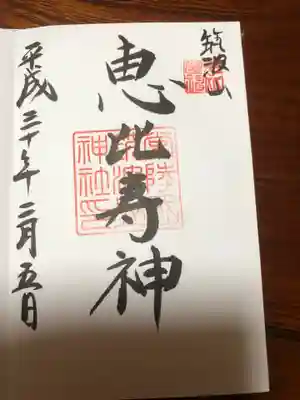 筑波山
恵比寿神
平成三十年二月五日